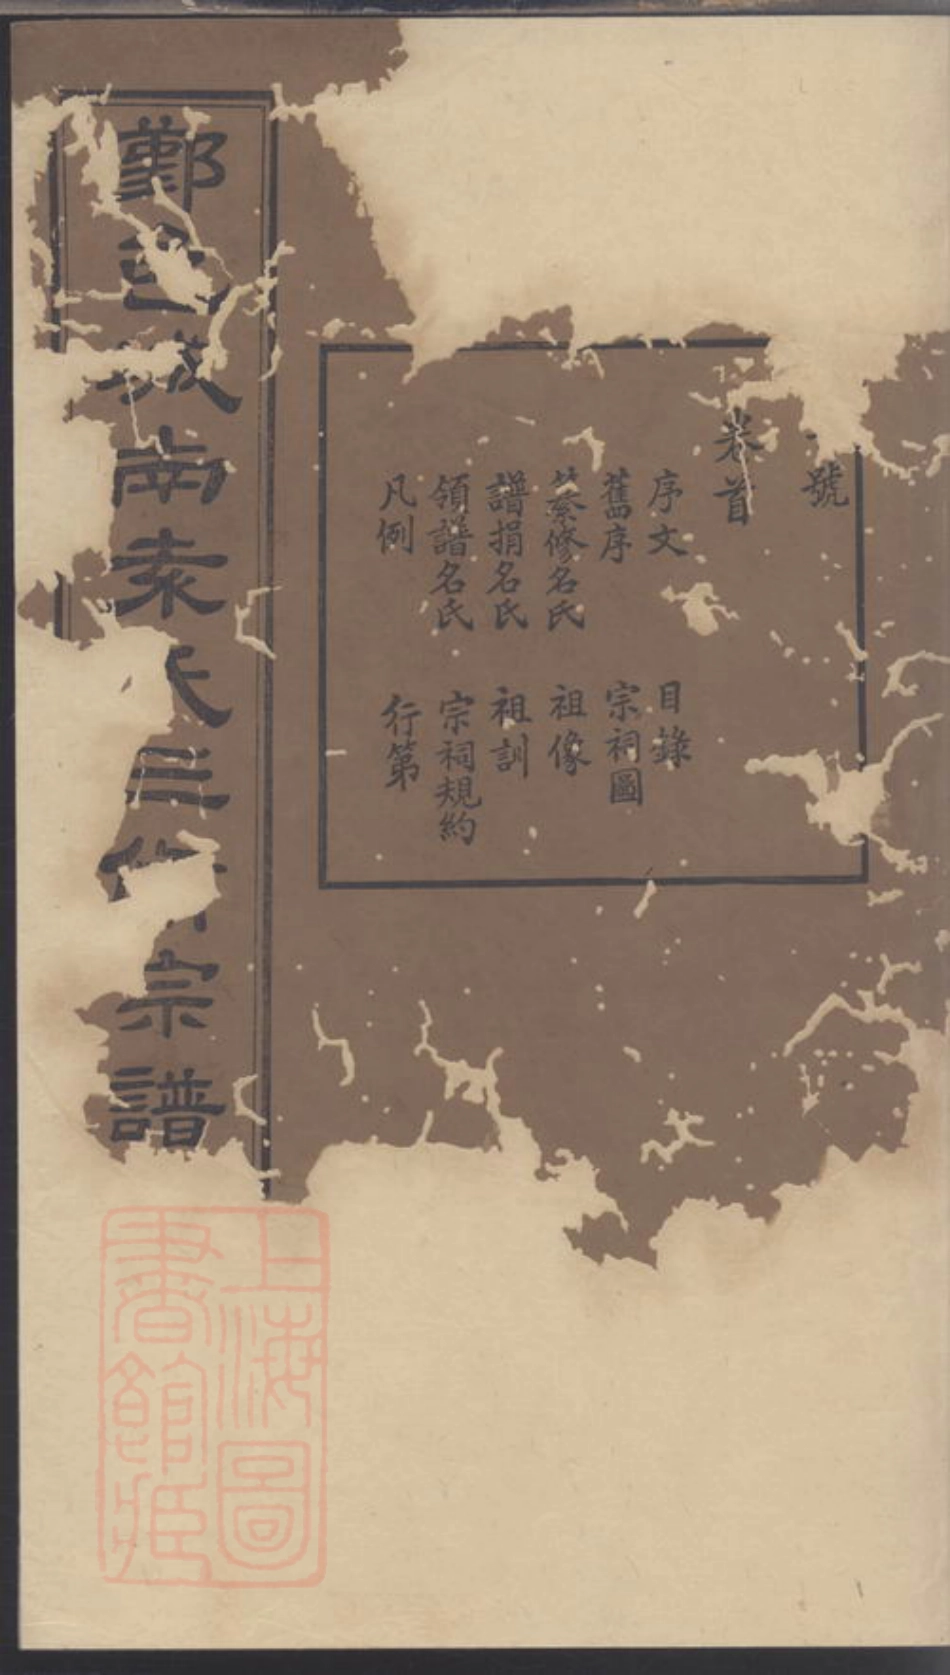 號
卷首
序文 目錄
舊序 宗祠圖
纂修名氏 祖像
譜捐名氏 祖訓
領譜名氏 宗祠規約
凡例 行第
鄞邑城南袁氏三修宗譜
上海圖
書館藏